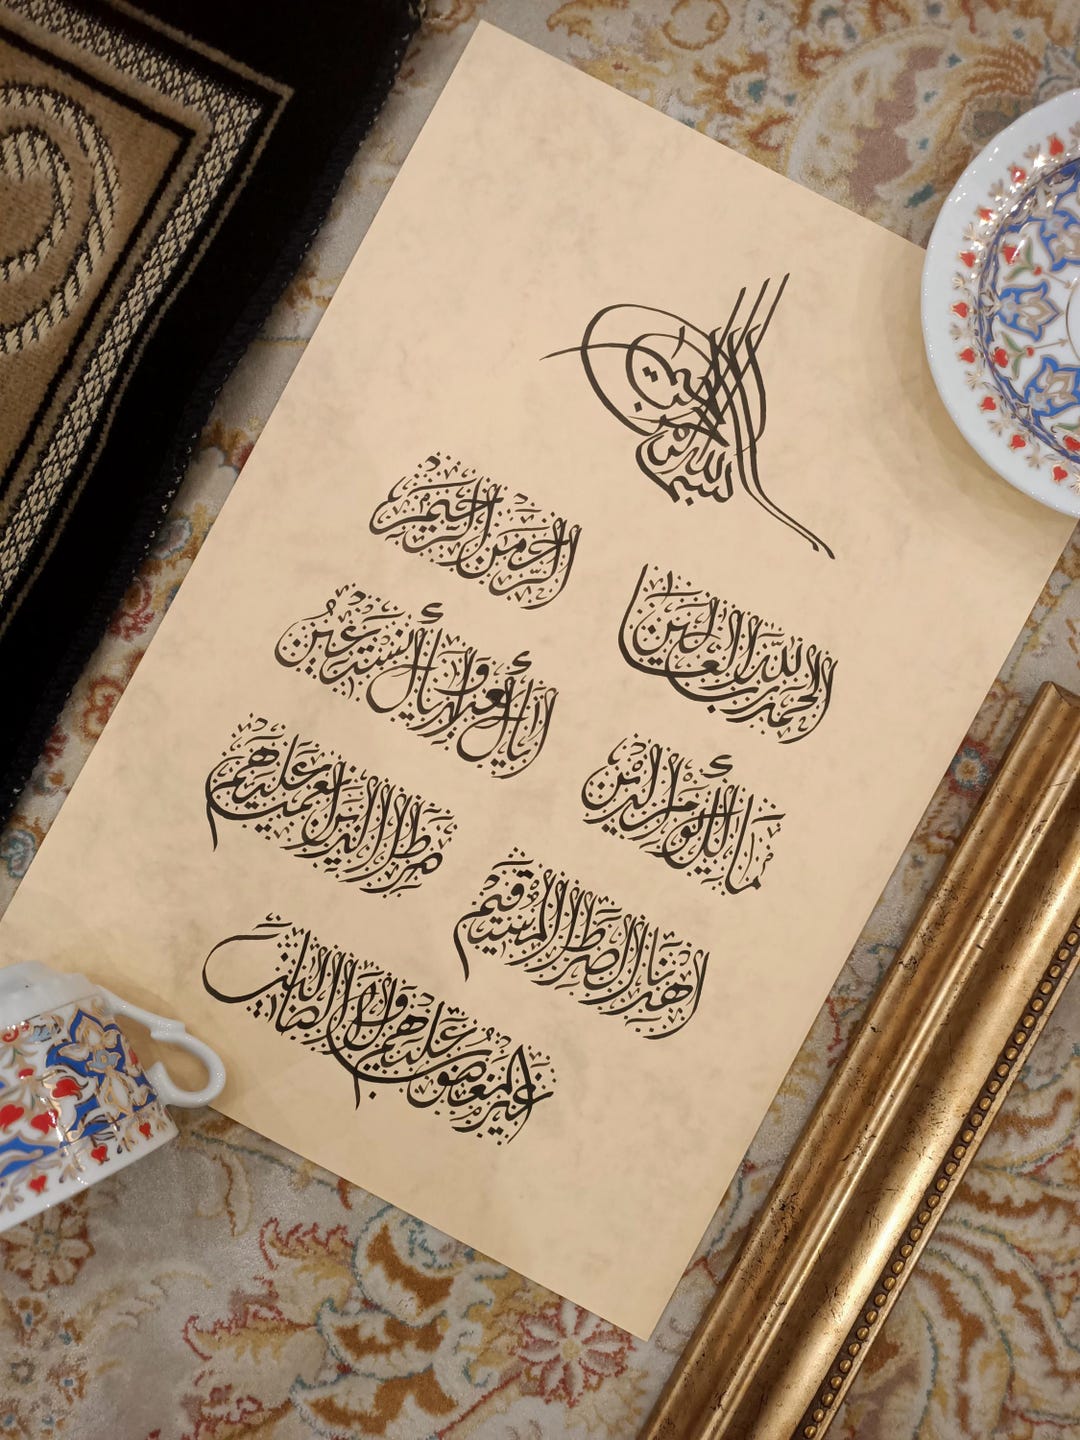 بسم الله الرحمن الرحيم
الحمد لله رب العالمين
الرحمن الرحيم
مالك يوم الدين
إياك نعبد وإياك نستعين
اهدنا الصراط المستقيم
صراط الذين أنعمت عليهم
غير المغضوب عليهم ولا الضالين